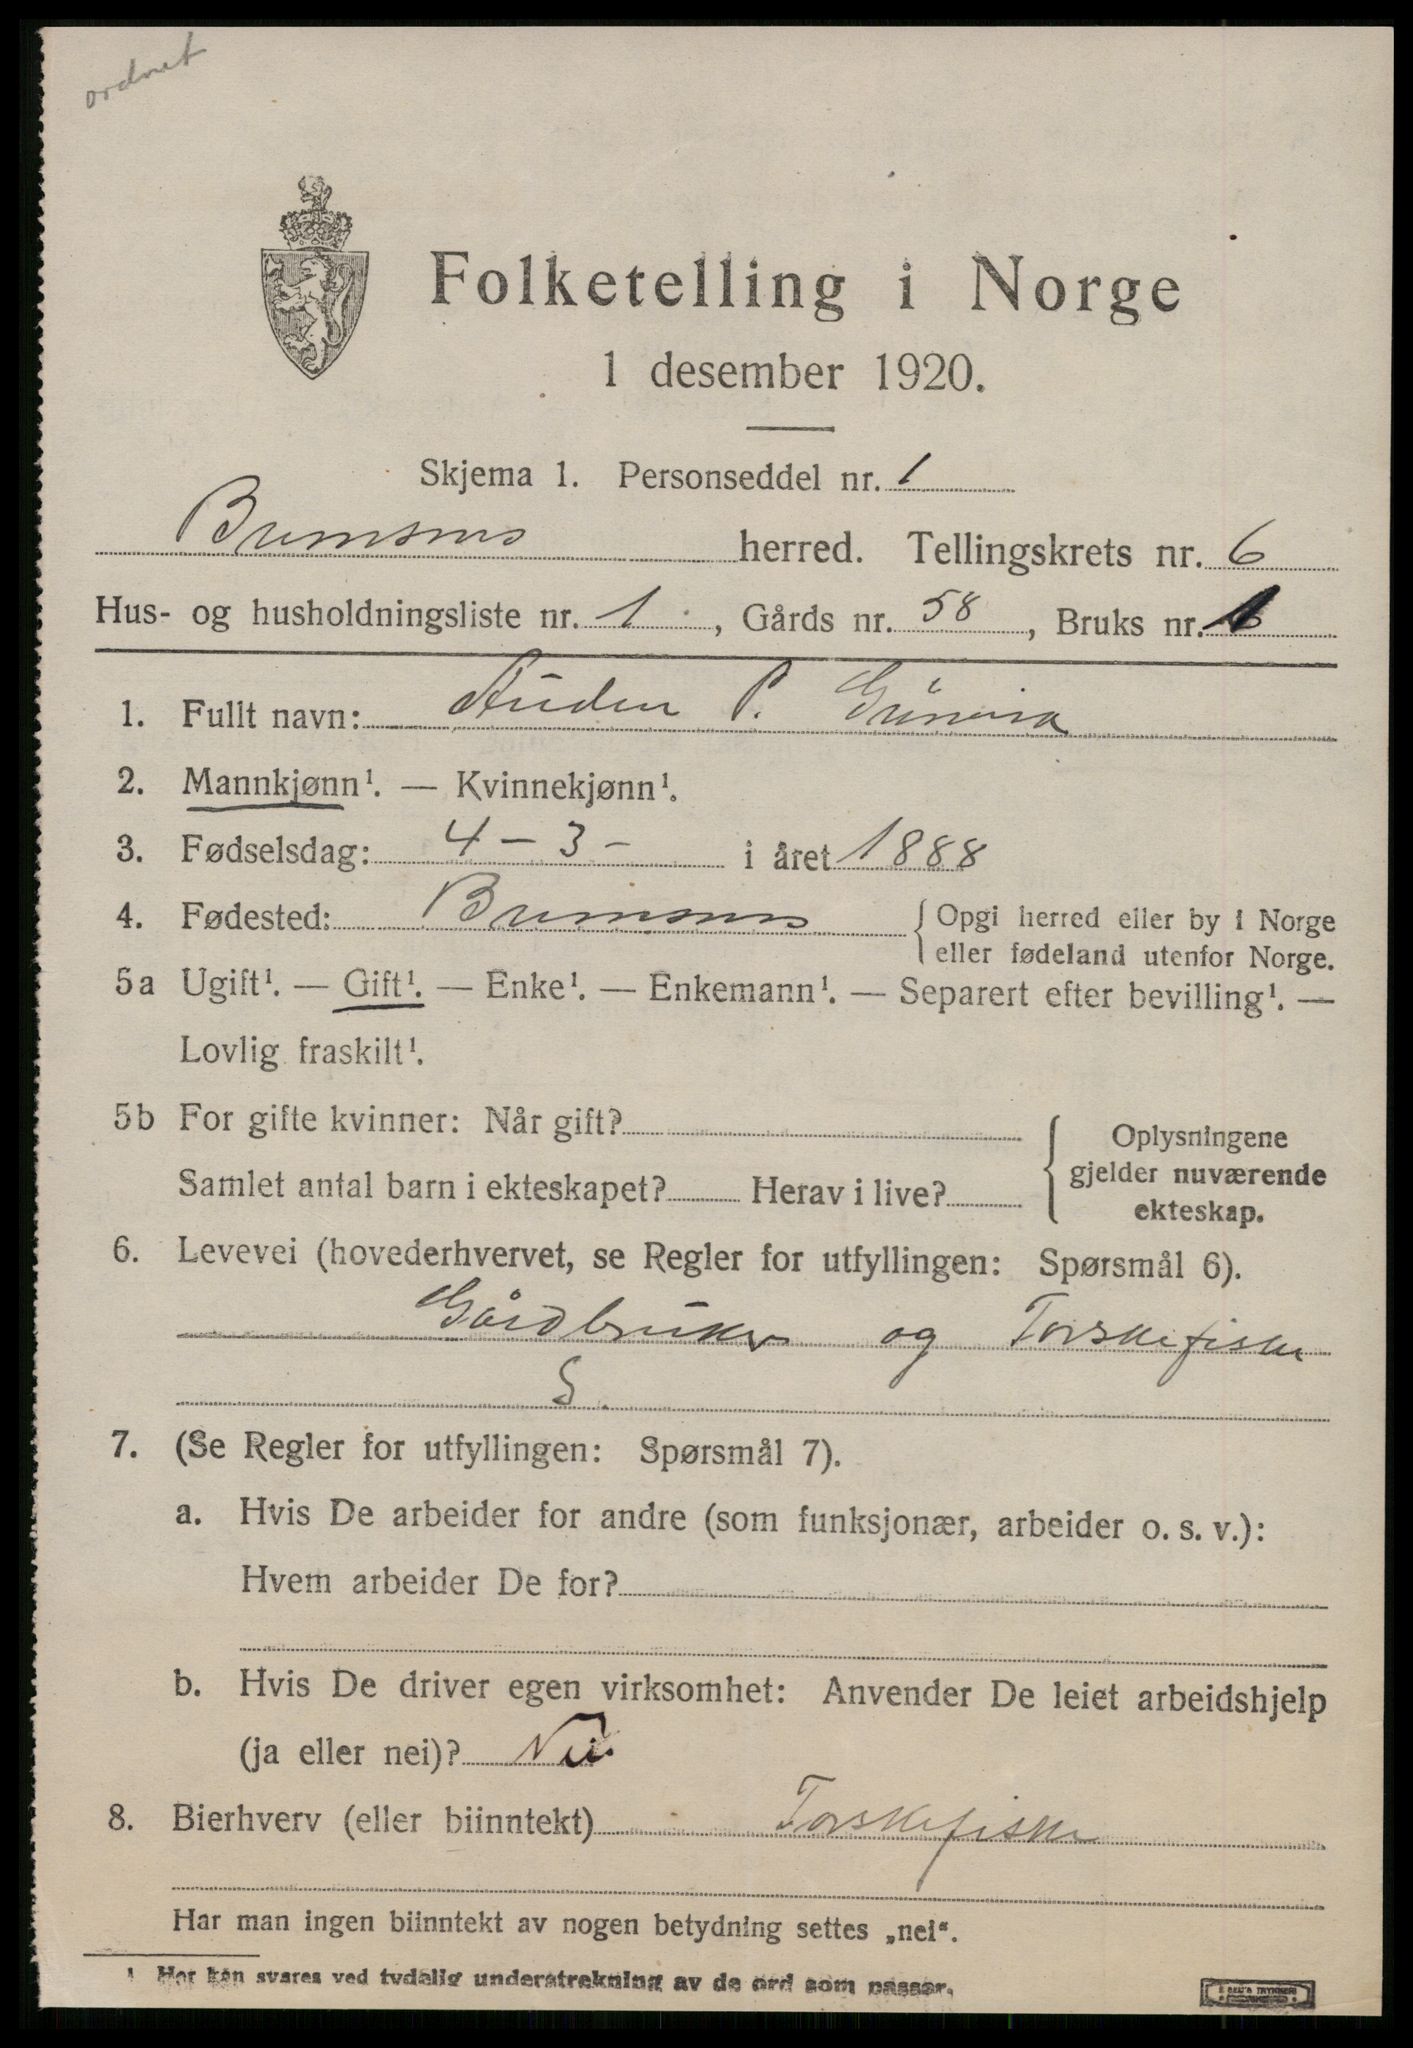 ordnet
Folketelling i Norge
1 desember 1920.
Skjema 1. Personseddel nr. 1
Bremsnes herred. Tellingskrets nr. 6
Hus- og husholdningsliste nr. 1, Gårds nr. 58, Bruks nr. 1
1. Fullt navn: P.
2. Mannkjønn¹. — Kvinnekjønn¹.
3. Fødselsdag: 4 - 3 - i året 1888
4. Fødested: Bremsnes { Opgi herred eller by i Norge
eller fødeland utenfor Norge.
5a Ugift¹. — Gift¹. — Enke¹. — Enkemann¹. — Separert efter bevilling¹. —
Lovlig fraskilt¹.
5b For gifte kvinner: Når gift?
Samlet antal barn i ekteskapet? Herav i live?
{ Oplysningene
gjelder nuværende
ekteskap.
6. Levevei (hovederhvervet, se Regler for utfyllingen: Spørsmål 6).
Gårdbruker og Torskefiske
S.
7. (Se Regler for utfyllingen: Spørsmål 7).
a. Hvis De arbeider for andre (som funksjonær, arbeider o. s. v.):
Hvem arbeider De for?
b. Hvis De driver egen virksomhet: Anvender De leiet arbeidshjelp
(ja eller nei)? Nei.
8. Bierhverv (eller biinntekt) Torskefiske
Har man ingen biinntekt av nogen betydning settes „nei“.
¹ Her kan svares ved tydelig understrekning av de ord som passer.